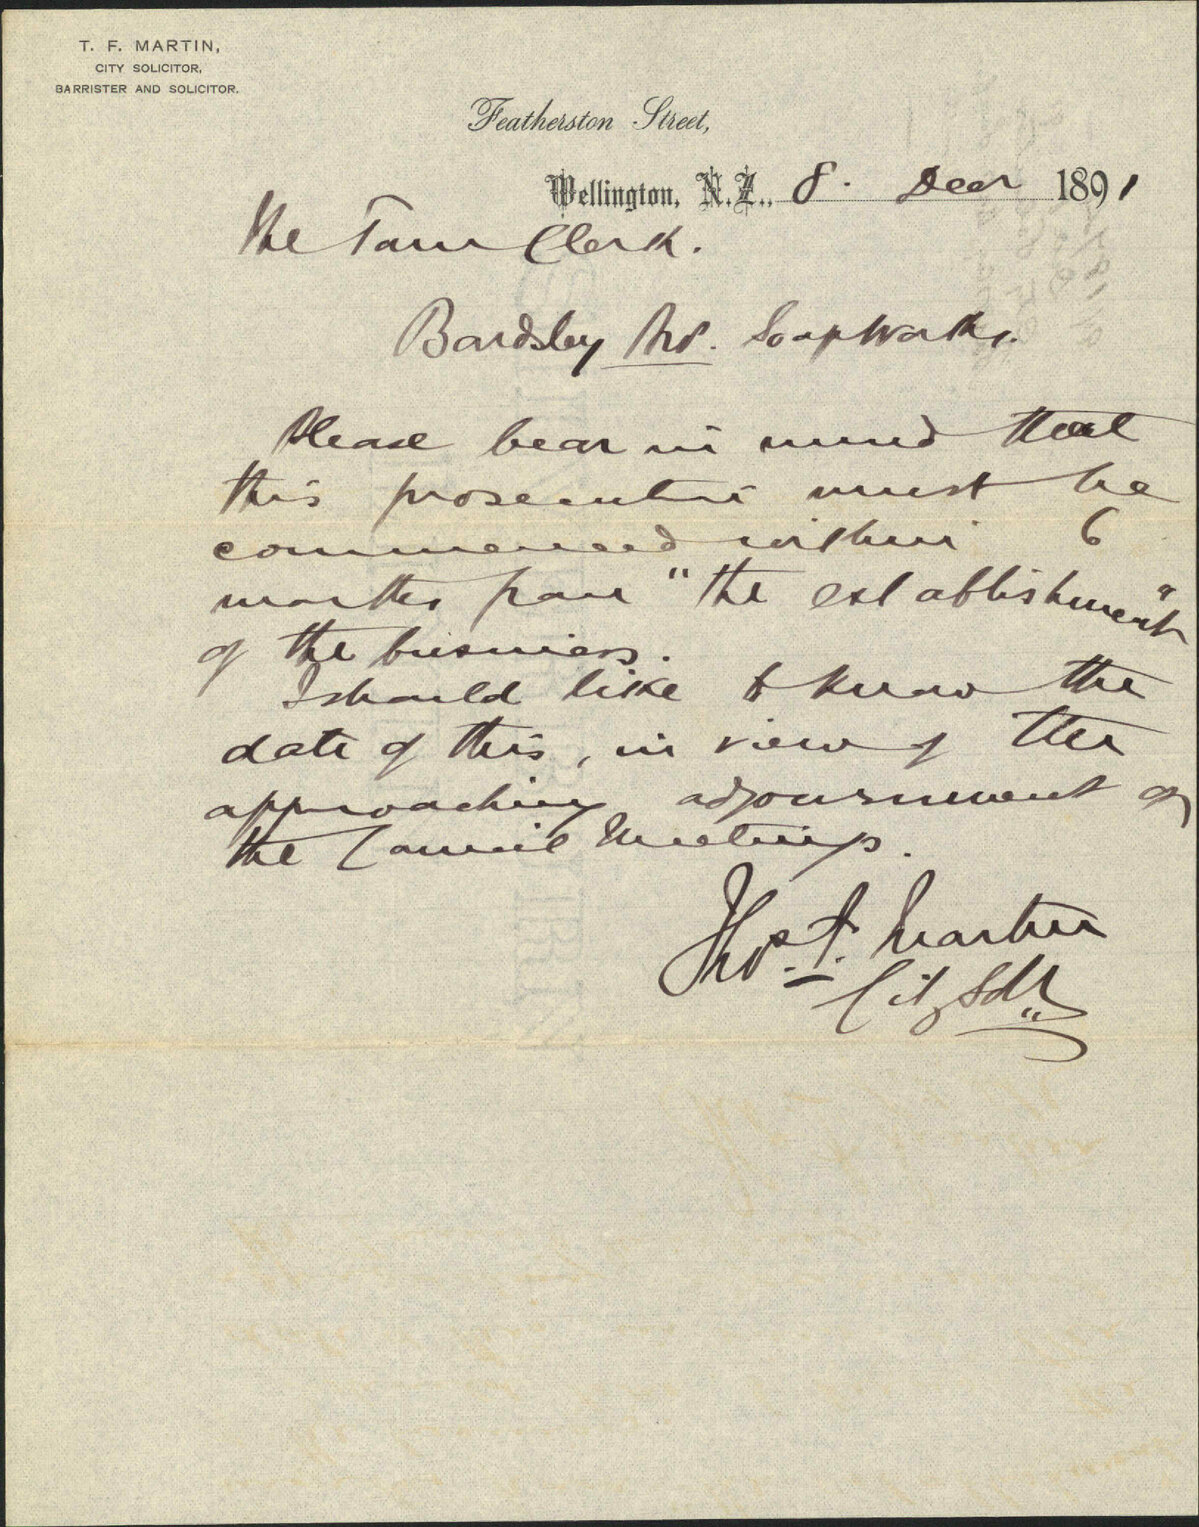 T. F. MARTIN,
CITY SOLICITOR,
BARRISTER AND SOLICITOR.
Featherston Street,
Wellington, N.Z., 8. Decr 1891
The Town Clerk.
Bardsley Soapworks.
Please bear in mind that
this prosecution must be
commenced within 6
months from "the establishment"
of the business.
I should like to know the
date of this, in view of the
approaching adjournment of
the Council Meetings.
Thos. F. Martin
City Solr